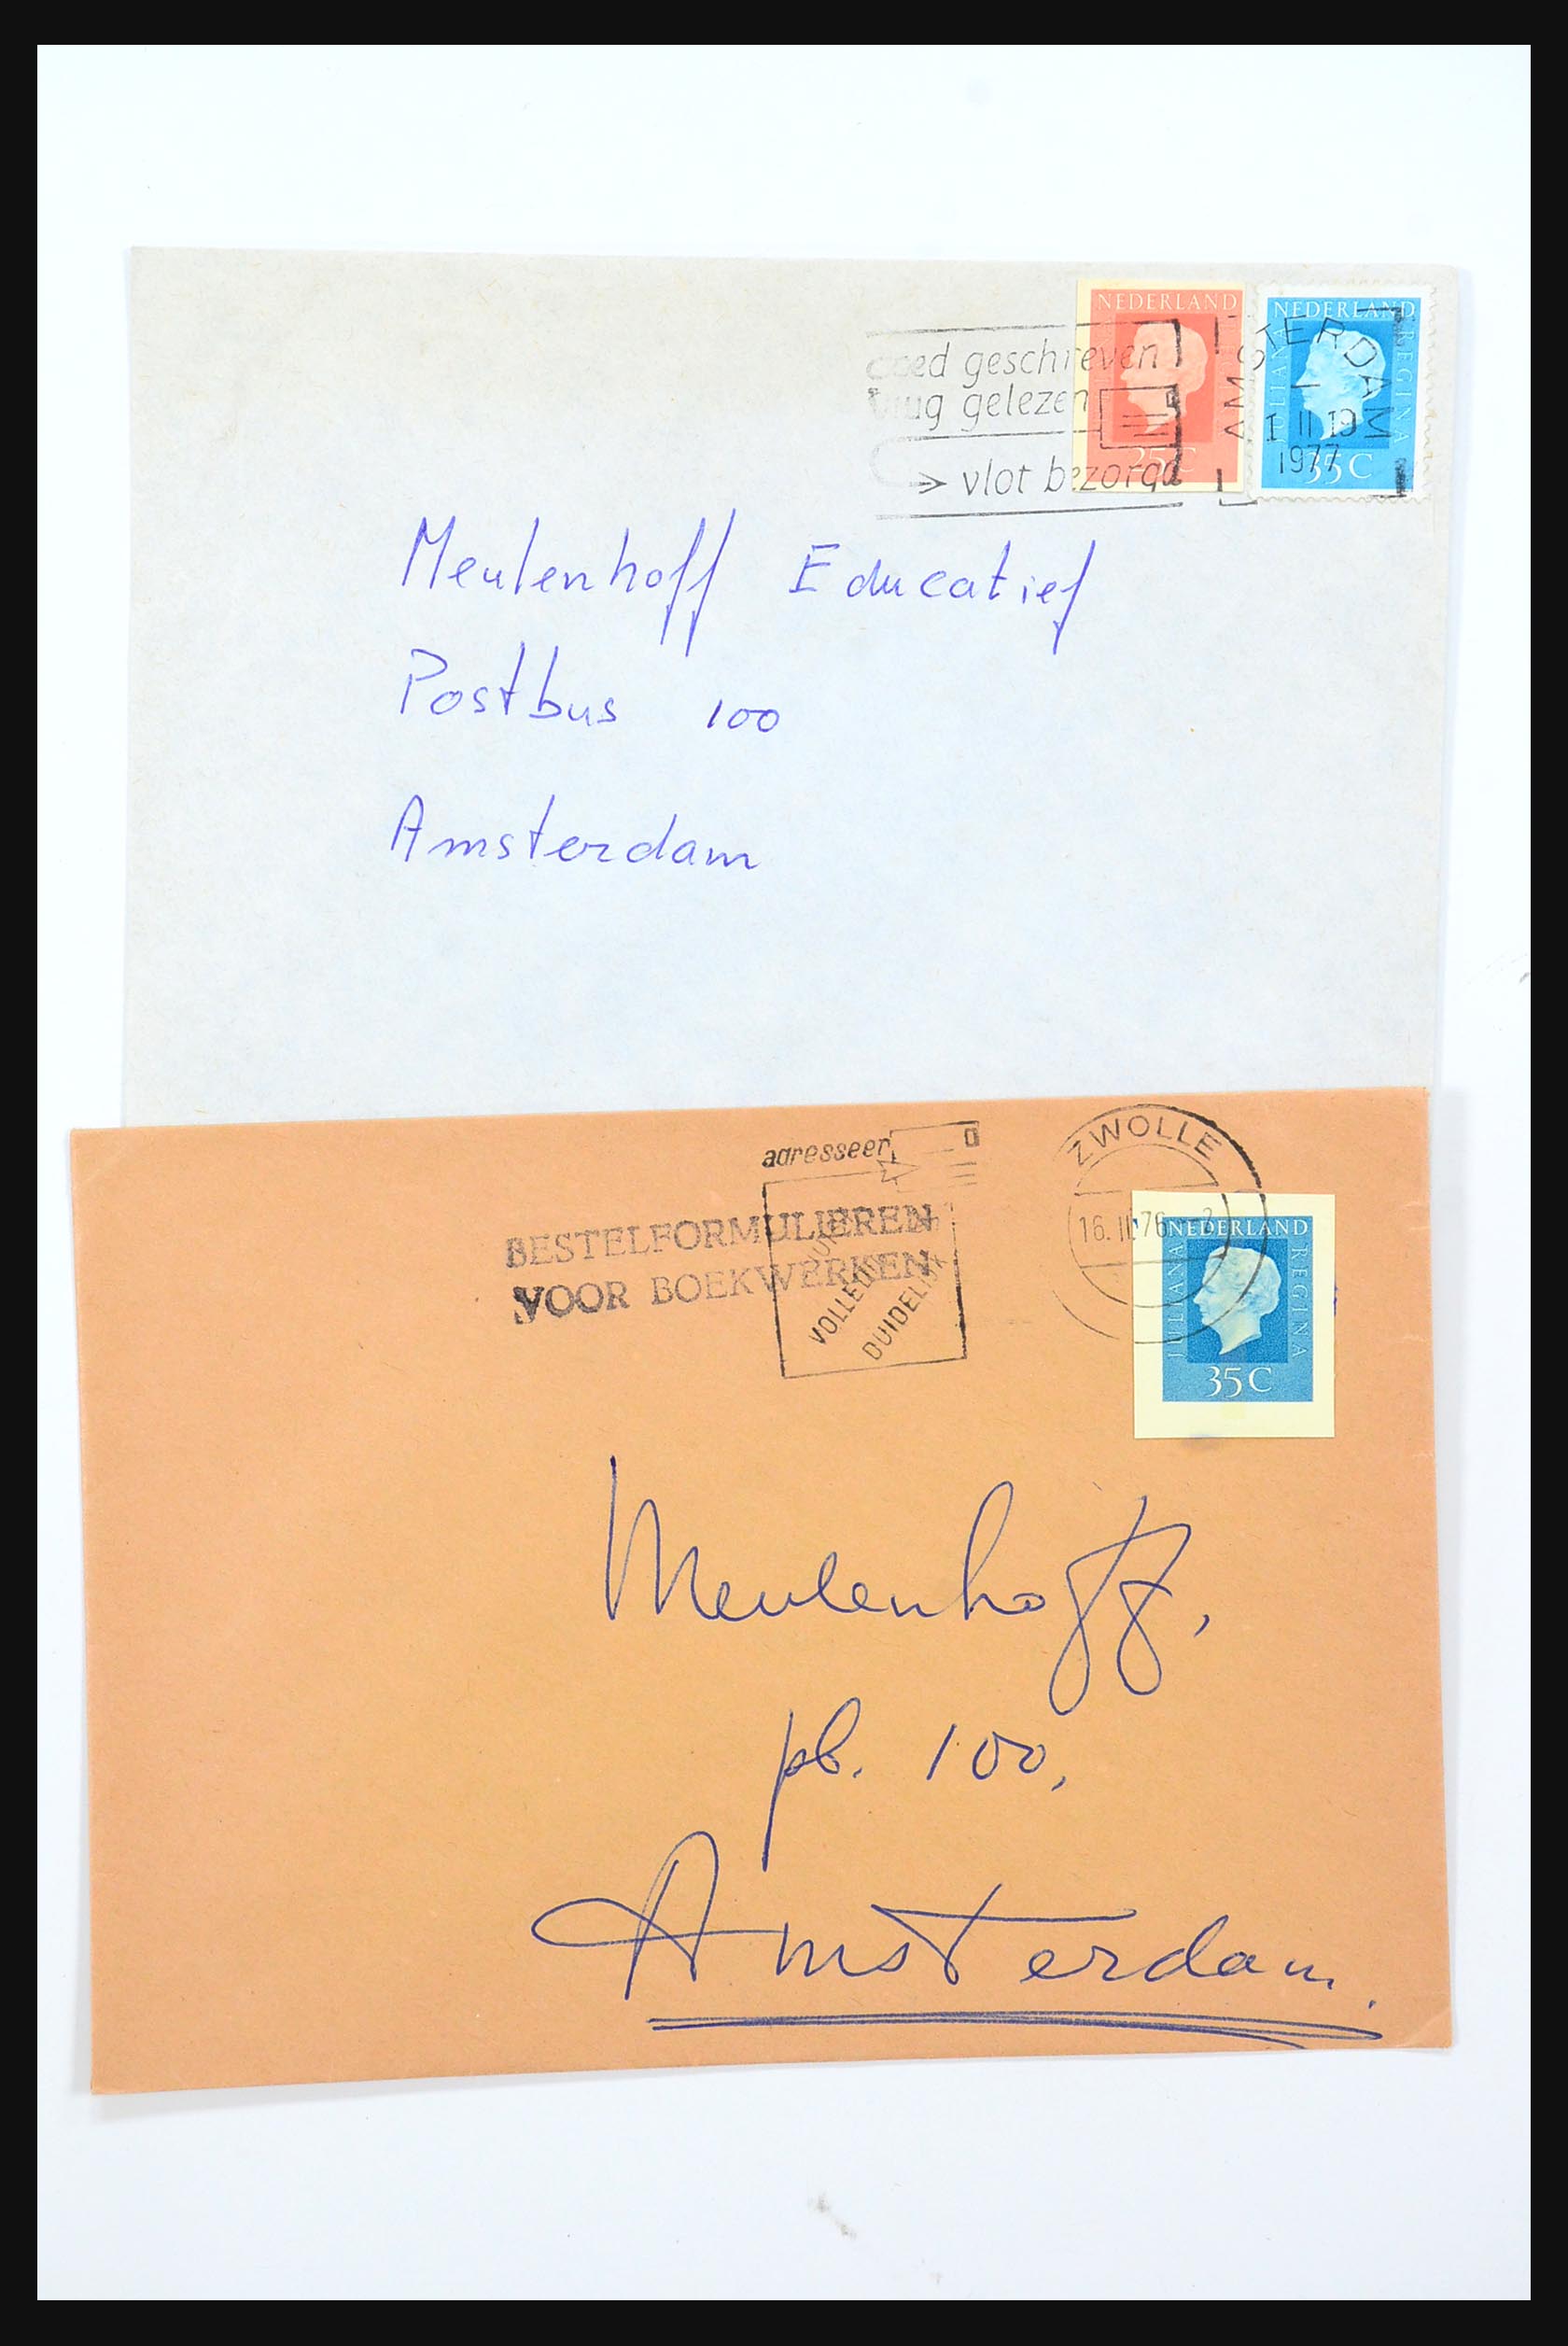 NEDERLAND
25 C
NEDERLAND
JULIANA
REGINA
35 C
AMSTERDAM
1 II 19
1977
geschreven
gelezen
vlot bezorgd
Meulenhoff Educatief
Postbus 100
Amsterdam
adresseer
VOLLEDIG
DUIDELIJK
BESTELFORMULIEREN
VOOR BOEKWERKEN
ZWOLLE
16. II 76
NEDERLAND
JULIANA
REGINA
35 C
Meulenhoff,
pb. 100,
Amsterdam.